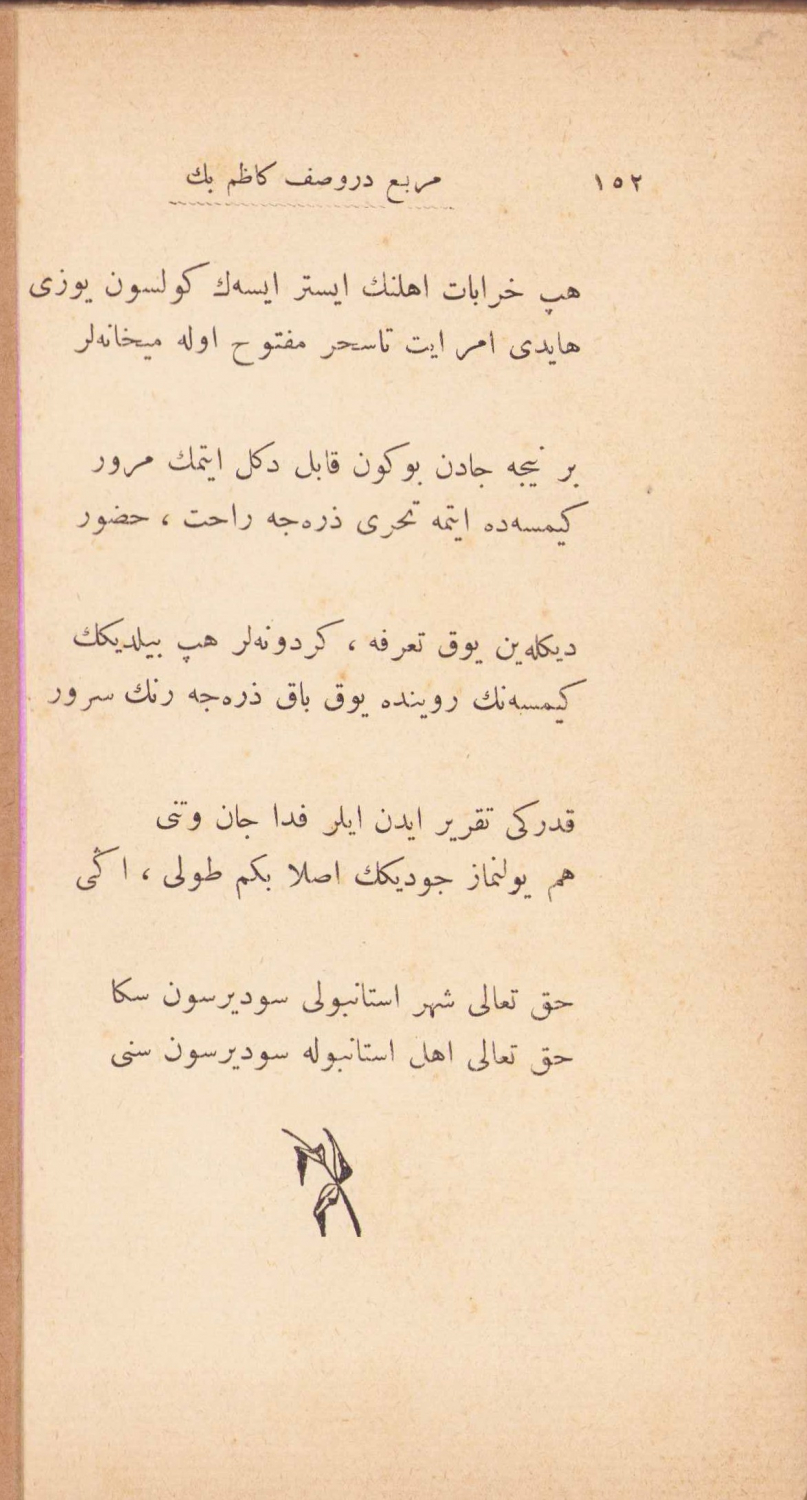 ١٥٢
مربع در وصف كاظم بك
هپ خرابات اهلنك ايستر ايسه‌ك كولسون يوزى
هايدى امر ايت تاسحر مفتوح اوله ميخانه‌لر
بر نيجه جادن بوكون قابل دكل ايتمك مرور
كيمسه‌ده ايتمه تحرى ذره‌جه راحت ، حضور
ديكله‌ين يوق تعرفه ، كردونه‌لر هپ بيلديكك
كيمسه‌نك روينده يوق باق ذره‌جه رنك سرور
قدركى تقرير ايدن ايلر فدا جان وتنى
هم يولنماز جوديكك اصلا بكم طولى ، اڭى
حق تعالى شهر استانبولى سوديرسون سكا
حق تعالى اهل استانبوله سوديرسون سنى